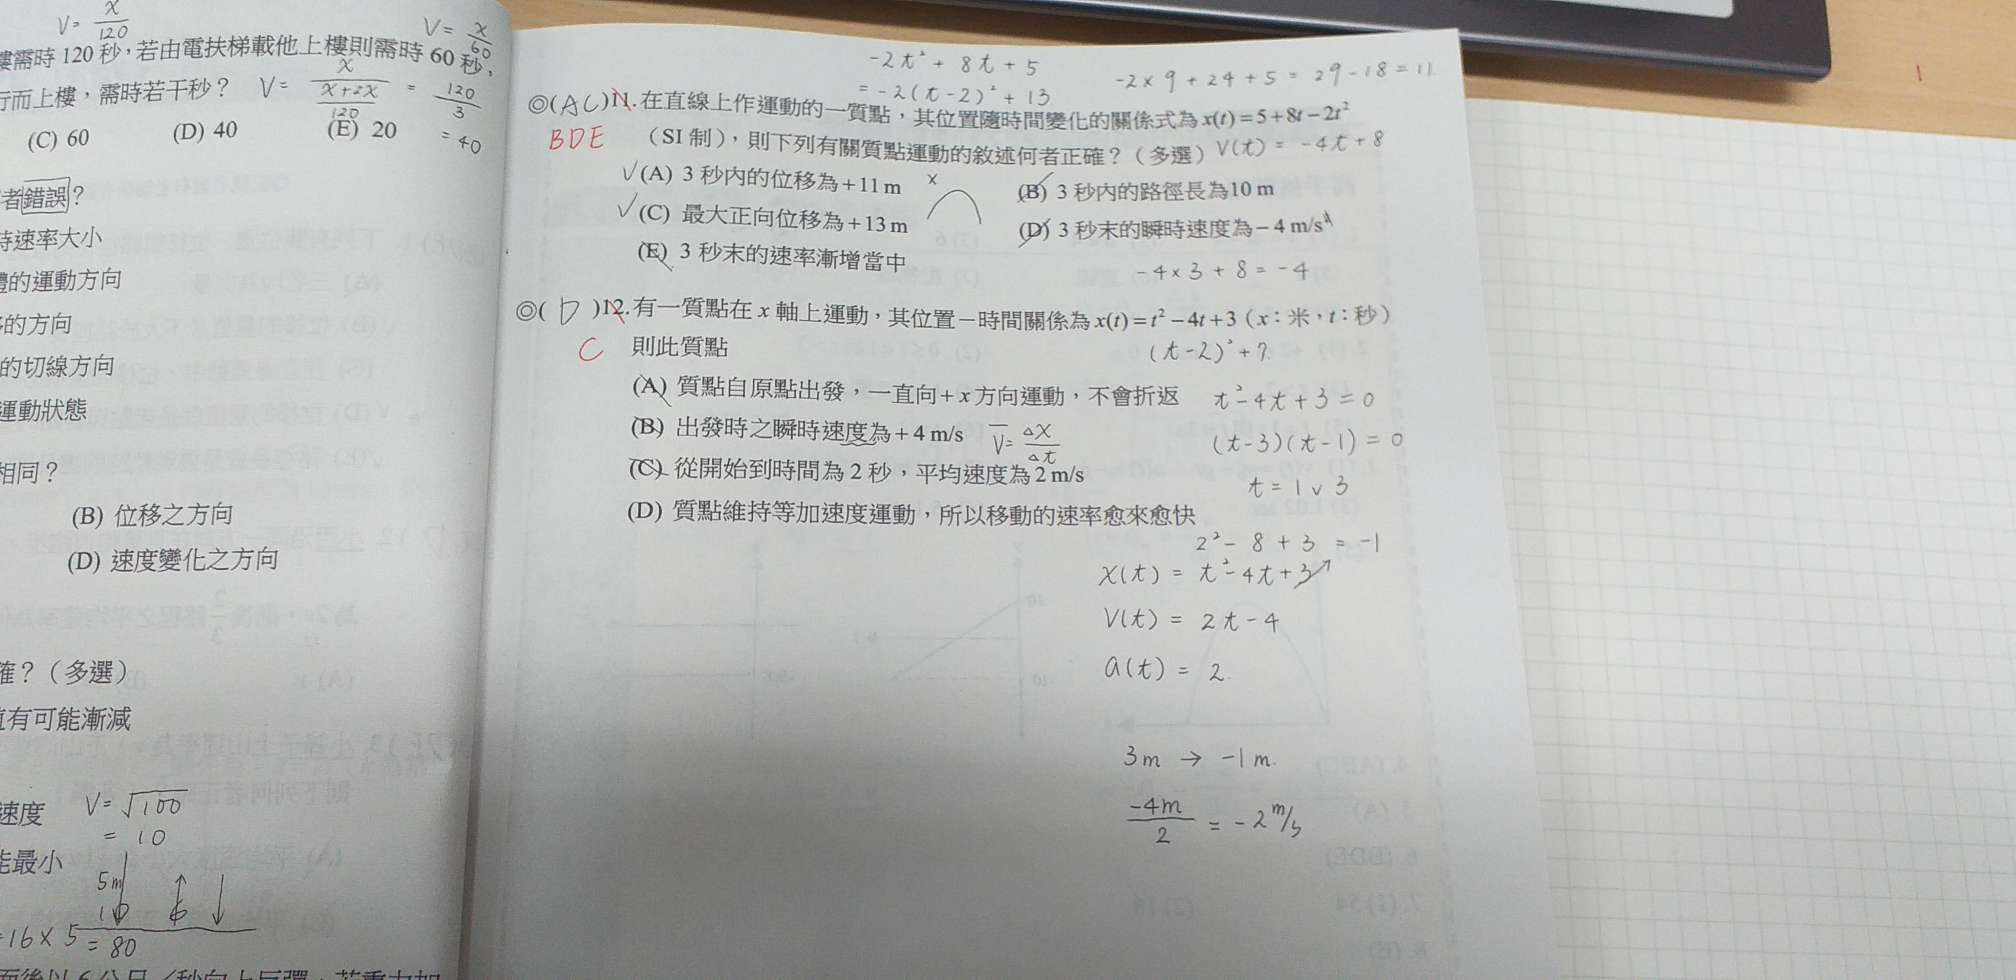 V = x/120
V = x/60
樓需時 120 秒，若由電扶梯載他上樓則需時 60 秒，
行而上樓，需時若干秒？ V = x / (x+2x / 120) = 120/3
(C) 60 (D) 40 (E) 20 = 40
者錯誤？
時速率大小
體的運動方向
的方向
的切線方向
運動狀態
相同？
(B) 位移之方向
(D) 速度變化之方向
確？（多選）
值有可能漸減
速度 V = √100
= 10
能最小
5m
10
=16 × 5 = 80
-2t² + 8t + 5
= -2(t-2)² + 13
-2×9 + 24 + 5 = 29-18 = 11
◎(AC)11.在直線上作運動的一質點，其位置隨時間變化的關係式為 x(t)=5+8t−2t²
BDE （SI 制），則下列有關質點運動的敘述何者正確？（多選） V(t) = -4t+8
✓(A) 3 秒內的位移為+11 m x (B) 3 秒內的路徑長為10 m
✓(C) 最大正向位移為+13 m (D) 3 秒末的瞬時速度為−4 m/s
(E) 3 秒末的速率漸增當中
-4×3 + 8 = -4
◎( D )12.有一質點在 x 軸上運動，其位置－時間關係為 x(t)=t²−4t+3（x：米，t：秒）
C 則此質點 (t-2)²+7
(A) 質點自原點出發，一直向+x方向運動，不會折返 t²-4t+3=0
(B) 出發時之瞬時速度為+4 m/s V̄ = Δx/Δt (t-3)(t-1)=0
(C) 從開始到時間為 2 秒，平均速度為 2 m/s t = 1 v 3
(D) 質點維持等加速度運動，所以移動的速率愈來愈快
2²- 8 + 3 = -1
x(t) = t²-4t+3
V(t) = 2t-4
a(t) = 2
3m → -1m
-4m/2 = -2 m/s